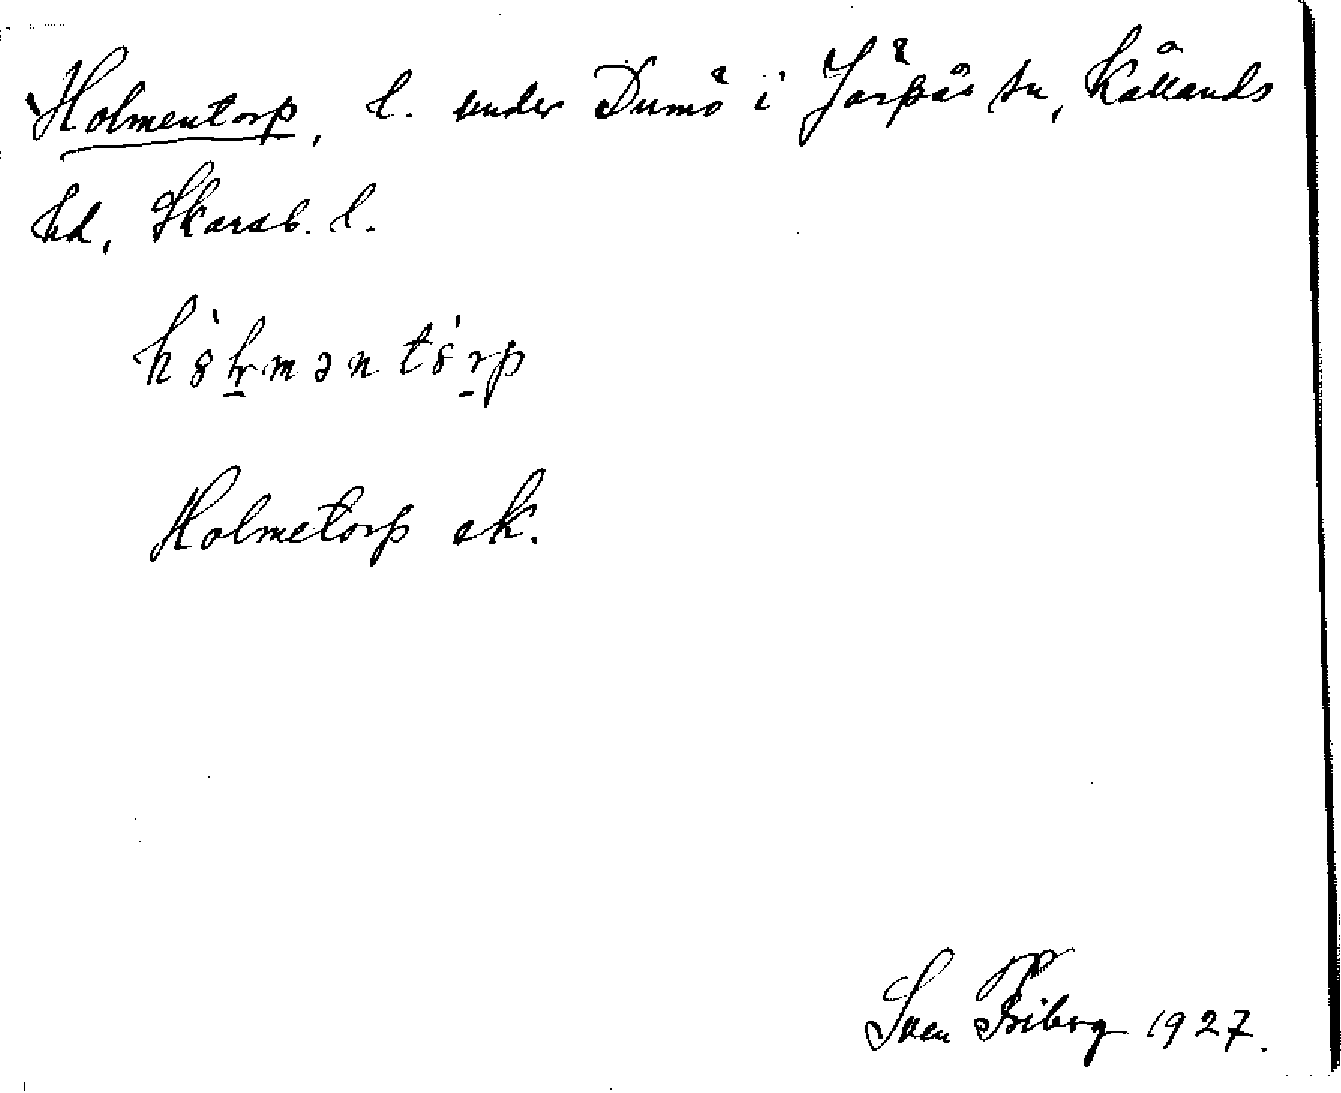 Holmentorp, l. under Dumö i Järpås sn, Kållands
hd, Skarab. l.
Holmetorp ek.
Sven Friberg 1927.